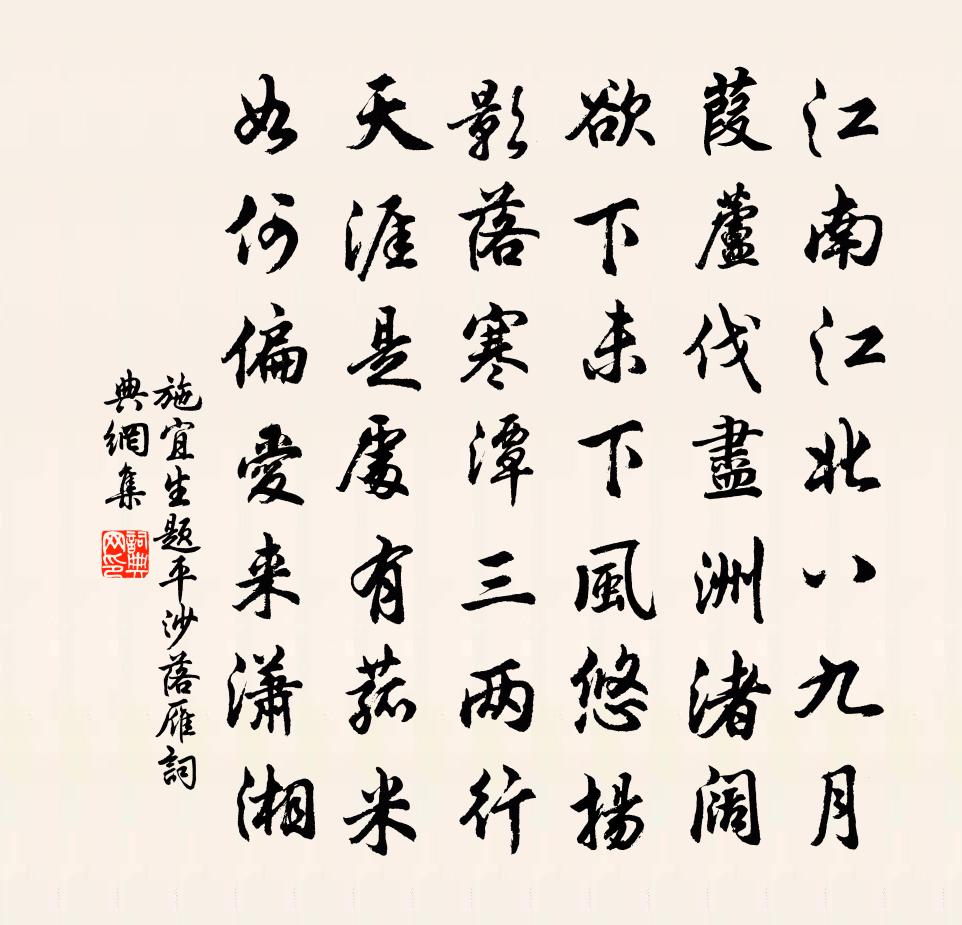 江南江北八九月
葭蘆伐盡洲渚闊
欲下未下風悠揚
影落寒潭三两行
天涯是處有菰米
如何偏愛来瀟湘
施宜生題平沙落雁詞
典網集
詞典
网印